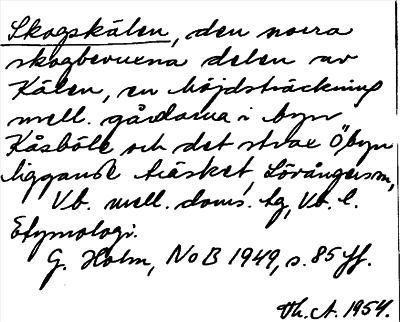 Skogskälen, den norra
skogbevuxna delen av
Kälen, en höjdsträckning
mell. gårdarna i byn
Kåsböle och det strax Ö byn
liggande träsket, Lövångersm,
Vb. mell. doms. tg, Vb. l.
Etymologi.
G. Holm, NoB 1949, s. 85 ff.
Th. A. 1954.